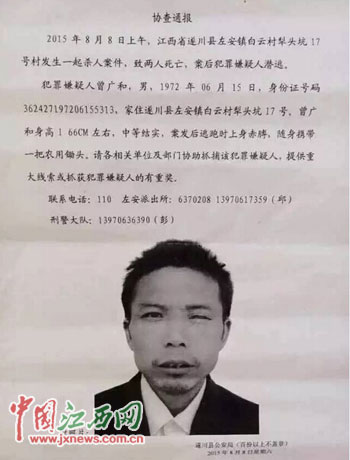 协查通报
2015 年 8 月 8 日上午，江西省遂川县左安镇白云村犁头坑 17
号村发生一起杀人案件，致两人死亡，案后犯罪嫌疑人潜逃。
犯罪嫌疑人曾广和，男，1972 年 06 月 15 日，身份证号码
362427197206155313，家住遂川县左安镇白云村犁头坑 17 号，曾广
和身高 1 66CM 左右，中等结实，案发后逃跑时上身赤膊，随身携带
一把农用锄头，请各相关单位及部门协助抓捕该犯罪嫌疑人，提供重
大线索或抓获犯罪嫌疑人的有重奖。
联系电话：110 左安派出所：6370208 13970617359（邱）
刑警大队：13970636390（彭）
中国江西网
www.jxnews.com.cn
遂川县公安局（百份以上不盖章）
2015 年 8 月 8 日星期六